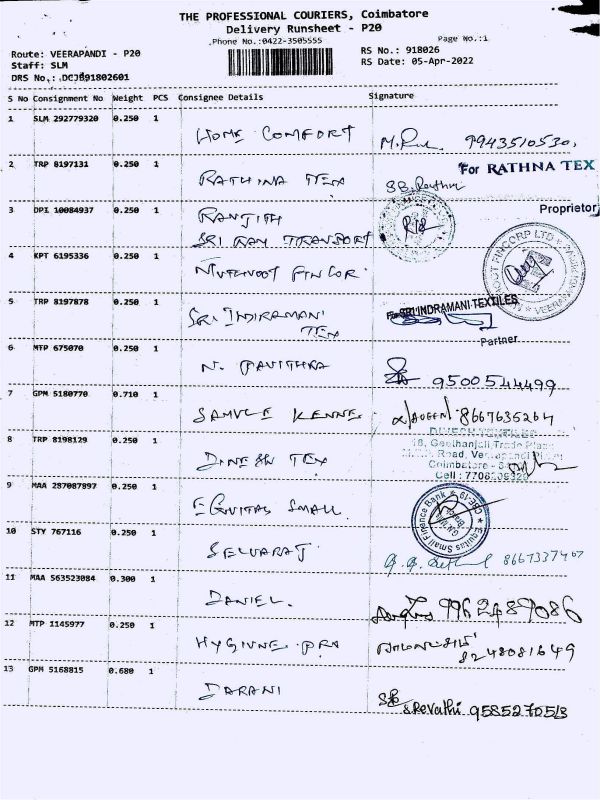 THE PROFESSIONAL COURIERS, Coimbatore
Delivery Runsheet - P20
Phone No.:0422-3505555
Page No.:1
Route: VEERAPANDI - P20
RS No.: 918026
Staff: SLM
RS Date: 05-Apr-2022
DRS No.:
S No Consignment No Weight PCS Consignee Details Signature
1 SLM 292779320 0.250 1 HOME COMFORT 9943510530,
2 TRP 8197131 0.250 1 RATHINA TEX
For RATHNA TEX
Proprietor
3 DPI 10084937 0.250 1 RANJITH
SRI RAM TRANSPORT
4 KPT 6195336 0.250 1 MUTHOOT FINCOR
5 TRP 8197878 0.250 1 SRI INDIRAMANI
TEX
SRI INDRAMANI TEXTILES
Partner
6 MTP 675070 0.250 1 N. PAVITHRA 9500544499
7 GPM 5180770 0.710 1 8667635264
8 TRP 8198129 0.250 1 DINESH TEX
DINESH TEXTILES
18, Geethanjali Trade
Road, Veerapandi
Coimbatore -
Cell :
9 MAA 287087897 0.250 1 EQUITAS SMALL
Equitas Small Finance Bank
10 STY 767116 0.250 1 SELVARAJ 8667337467
11 MAA 563523084 0.300 1 DANIEL. 9962489086
12 MTP 1145977 0.250 1 HYGIUNE PRO
8248081649
13 GPM 5168815 0.680 1 DARANI
Revathi 9585270513